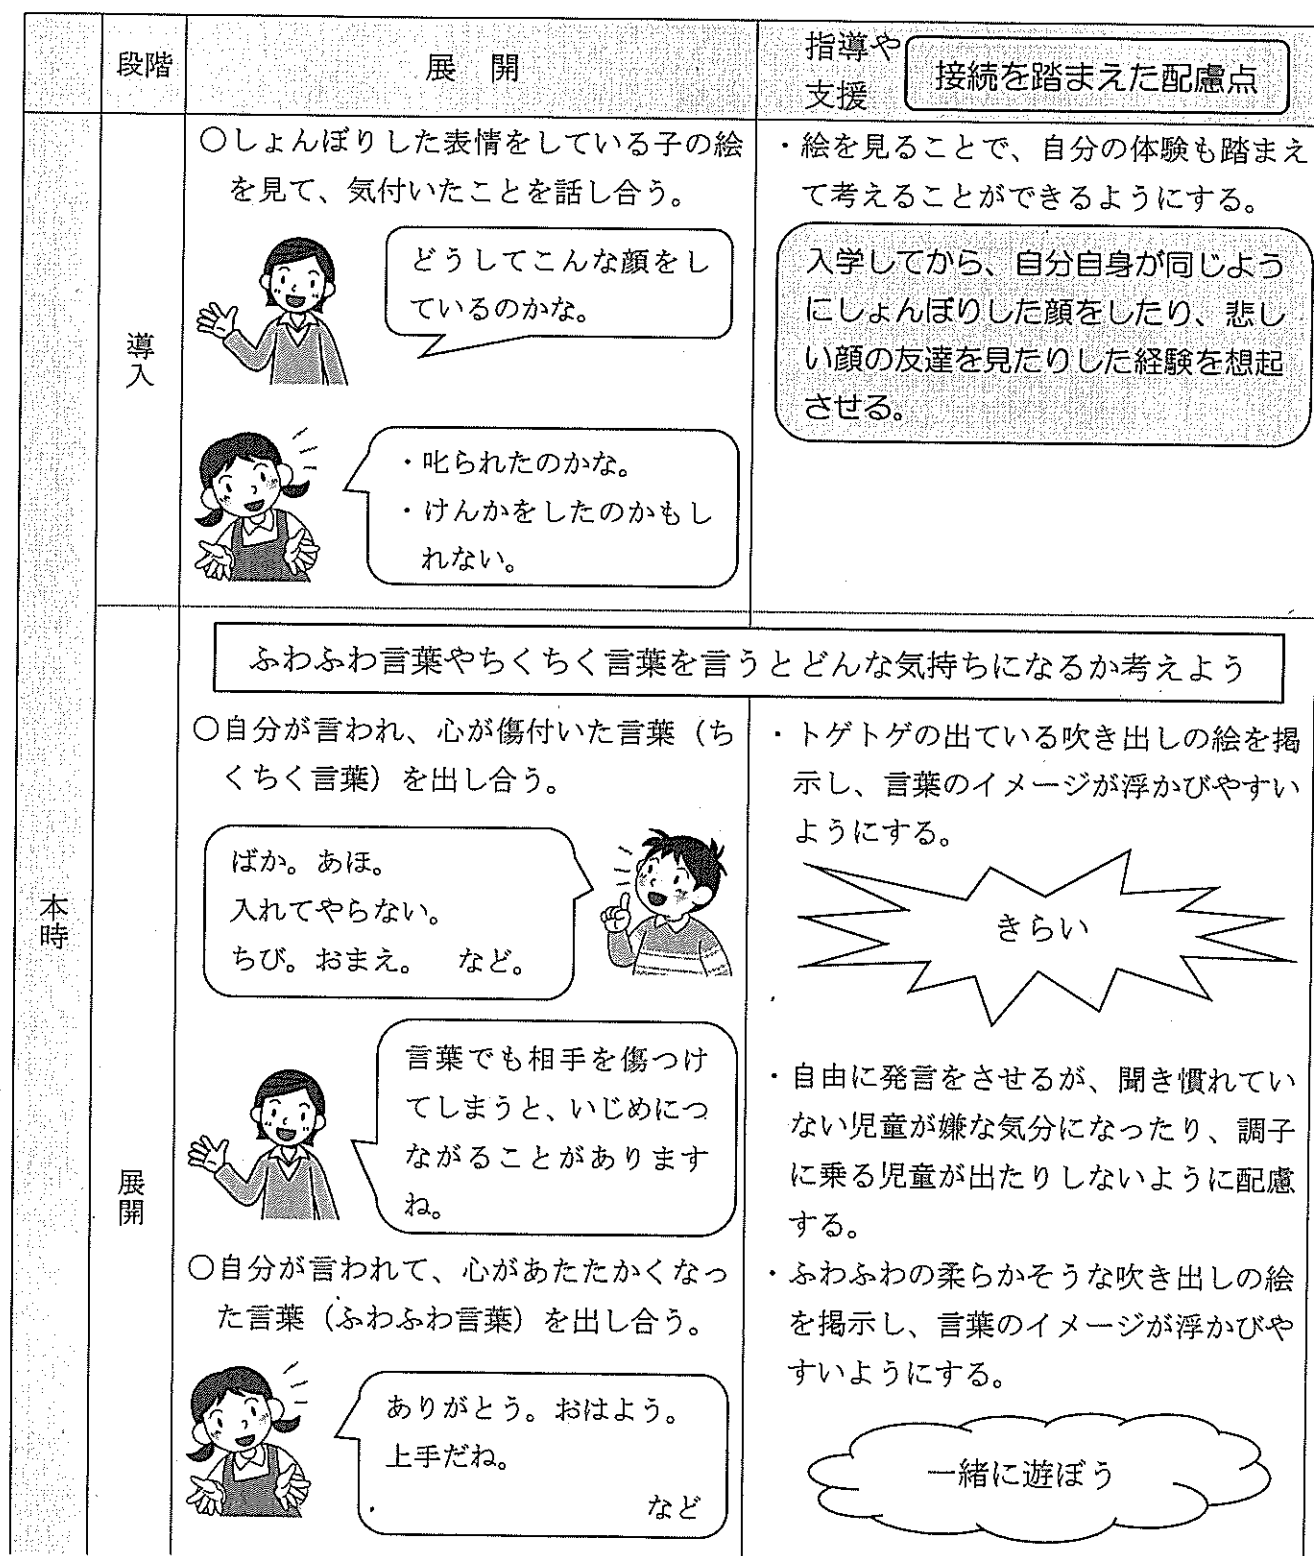 段階
展　開
指導や
支援
接続を踏まえた配慮点
本時
導入
〇しょんぼりした表情をしている子の絵
を見て、気付いたことを話し合う。
どうしてこんな顔をし
ているのかな。
・叱られたのかな。
・けんかをしたのかもし
れない。
・絵を見ることで、自分の体験も踏まえ
て考えることができるようにする。
入学してから、自分自身が同じよう
にしょんぼりした顔をしたり、悲し
い顔の友達を見たりした経験を想起
させる。
展開
ふわふわ言葉やちくちく言葉を言うとどんな気持ちになるか考えよう
〇自分が言われ、心が傷付いた言葉（ち
くちく言葉）を出し合う。
ばか。あほ。
入れてやらない。
ちび。おまえ。　など。
言葉でも相手を傷つけ
てしまうと、いじめにつ
ながることがあります
ね。
〇自分が言われて、心があたたかくなっ
た言葉（ふわふわ言葉）を出し合う。
ありがとう。おはよう。
上手だね。
など
・トゲトゲの出ている吹き出しの絵を掲
示し、言葉のイメージが浮かびやすい
ようにする。
きらい
・自由に発言をさせるが、聞き慣れてい
ない児童が嫌な気分になったり、調子
に乗る児童が出たりしないように配慮
する。
・ふわふわの柔らかそうな吹き出しの絵
を掲示し、言葉のイメージが浮かびや
すいようにする。
一緒に遊ぼう